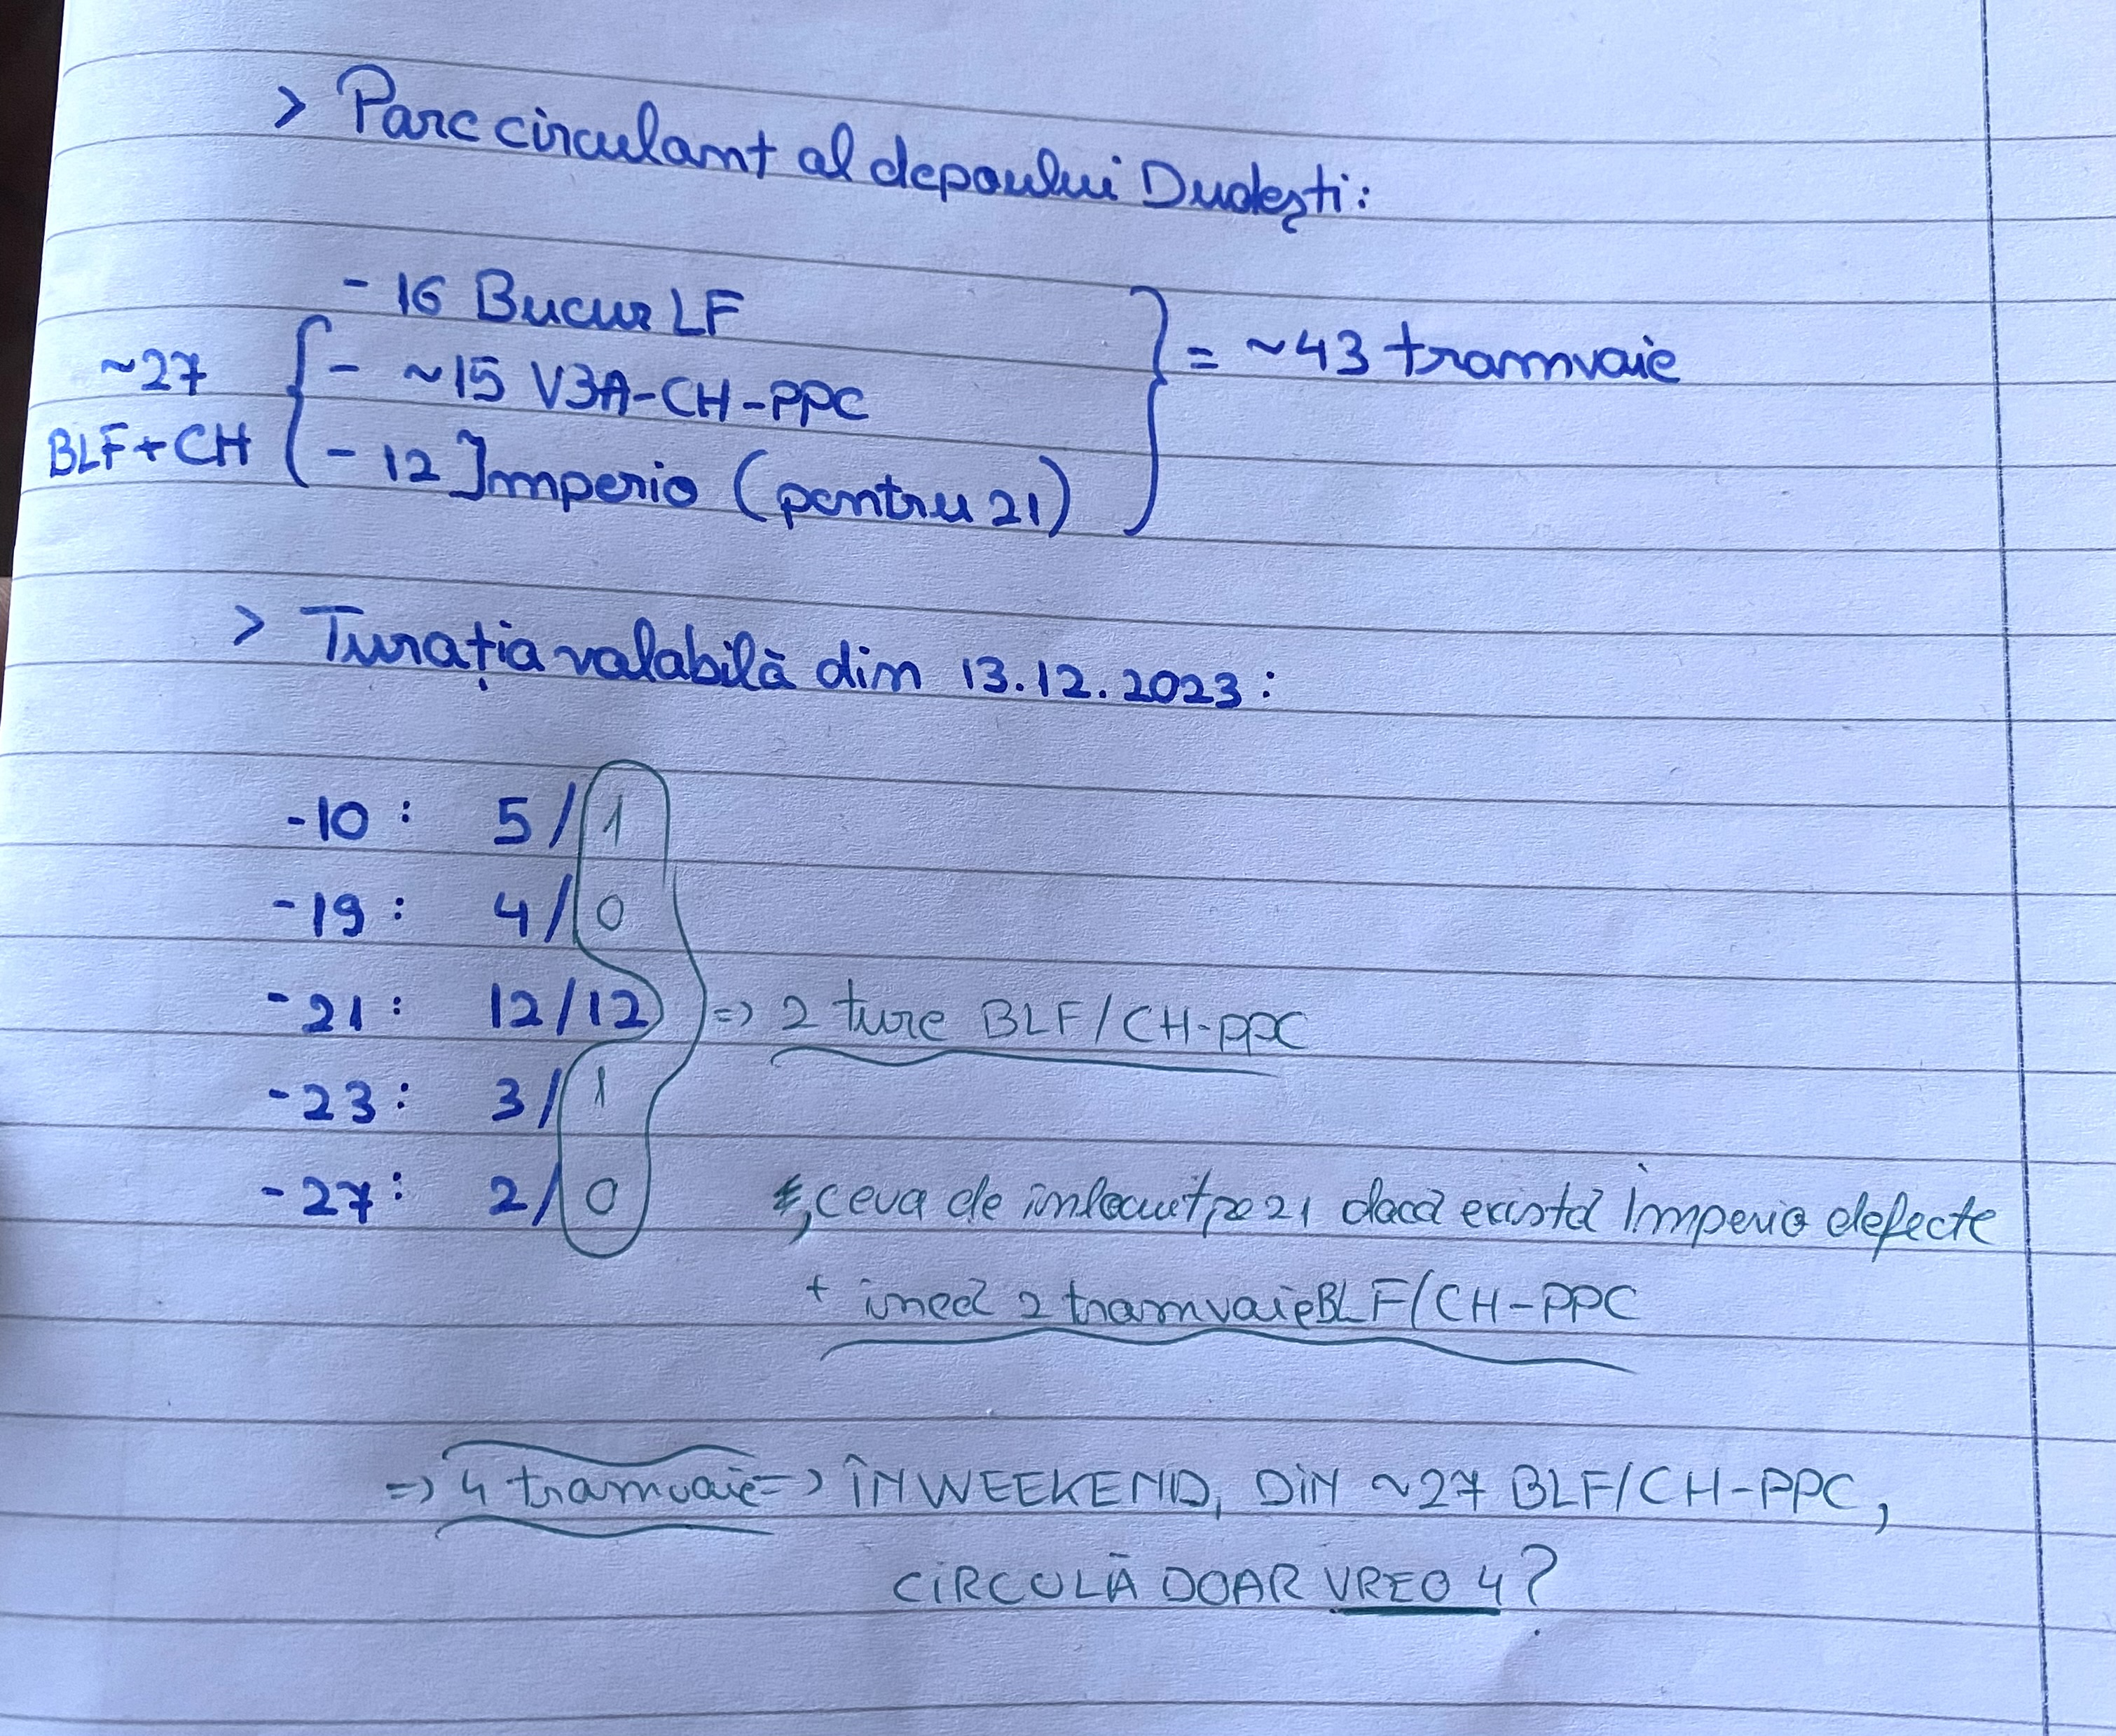 > Parc circulant al depoului Dudești:
- 16 Bucur LF
- ~15 V3A-CH-PPC
- 12 Imperio (pentru 21)
~27
BLF+CH
= ~43 tramvaie
> Turația valabilă din 13.12.2023:
-10: 5/1
-19: 4/0
-21: 12/12 => 2 ture BLF/CH-PPC
-23: 3/1
-27: 2/0
, ceva de înlocuit pe 21 dacă există Imperio defecte
+ încă 2 tramvaie BLF/CH-PPC
=> 4 tramvaie => ÎN WEEKEND, DIN ~27 BLF/CH-PPC,
CIRCULĂ DOAR VREO 4?